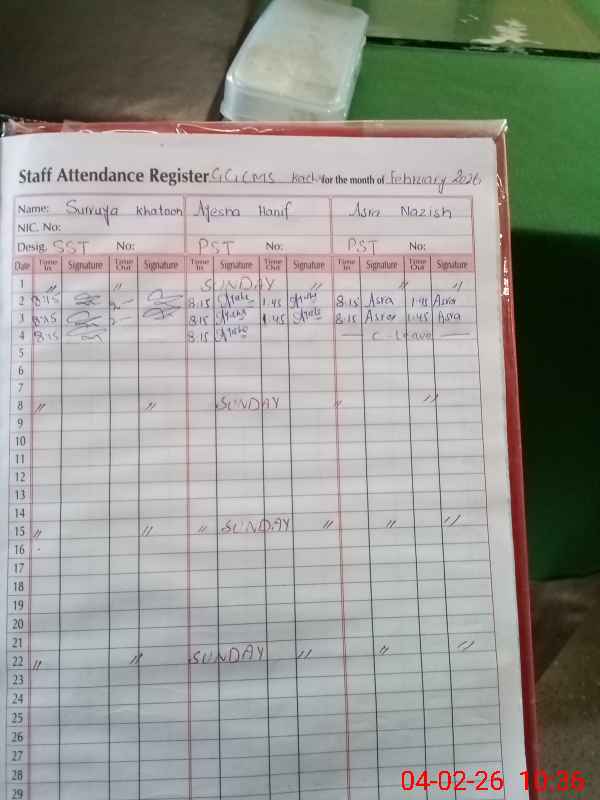 Staff Attendance Register GGCMS for the month of February 2026
Name: Surruya khatoon Ayesha Hanif Asra Nazish
NIC. No:
Desig. SST No: PST No: PST No:
Date Time In Signature Time Out Signature Time In Signature Time Out Signature Time In Signature Time Out Signature
1 " " SUNDAY " " "
2 8:15 2- 8:15 1:45 8:15 Asra 1:45 Asra
3 8:15 2- 8:15 1:45 8:15 Asra 1:45 Asra
4 8:15 8:15 — C. leave —
5
6
7
8 " " SUNDAY " "
9
10
11
12
13
14
15 " " " SUNDAY " " "
16
17
18
19
20
21
22 " " SUNDAY " " "
23
24
25
26
27
28
29
04-02-26 10:36